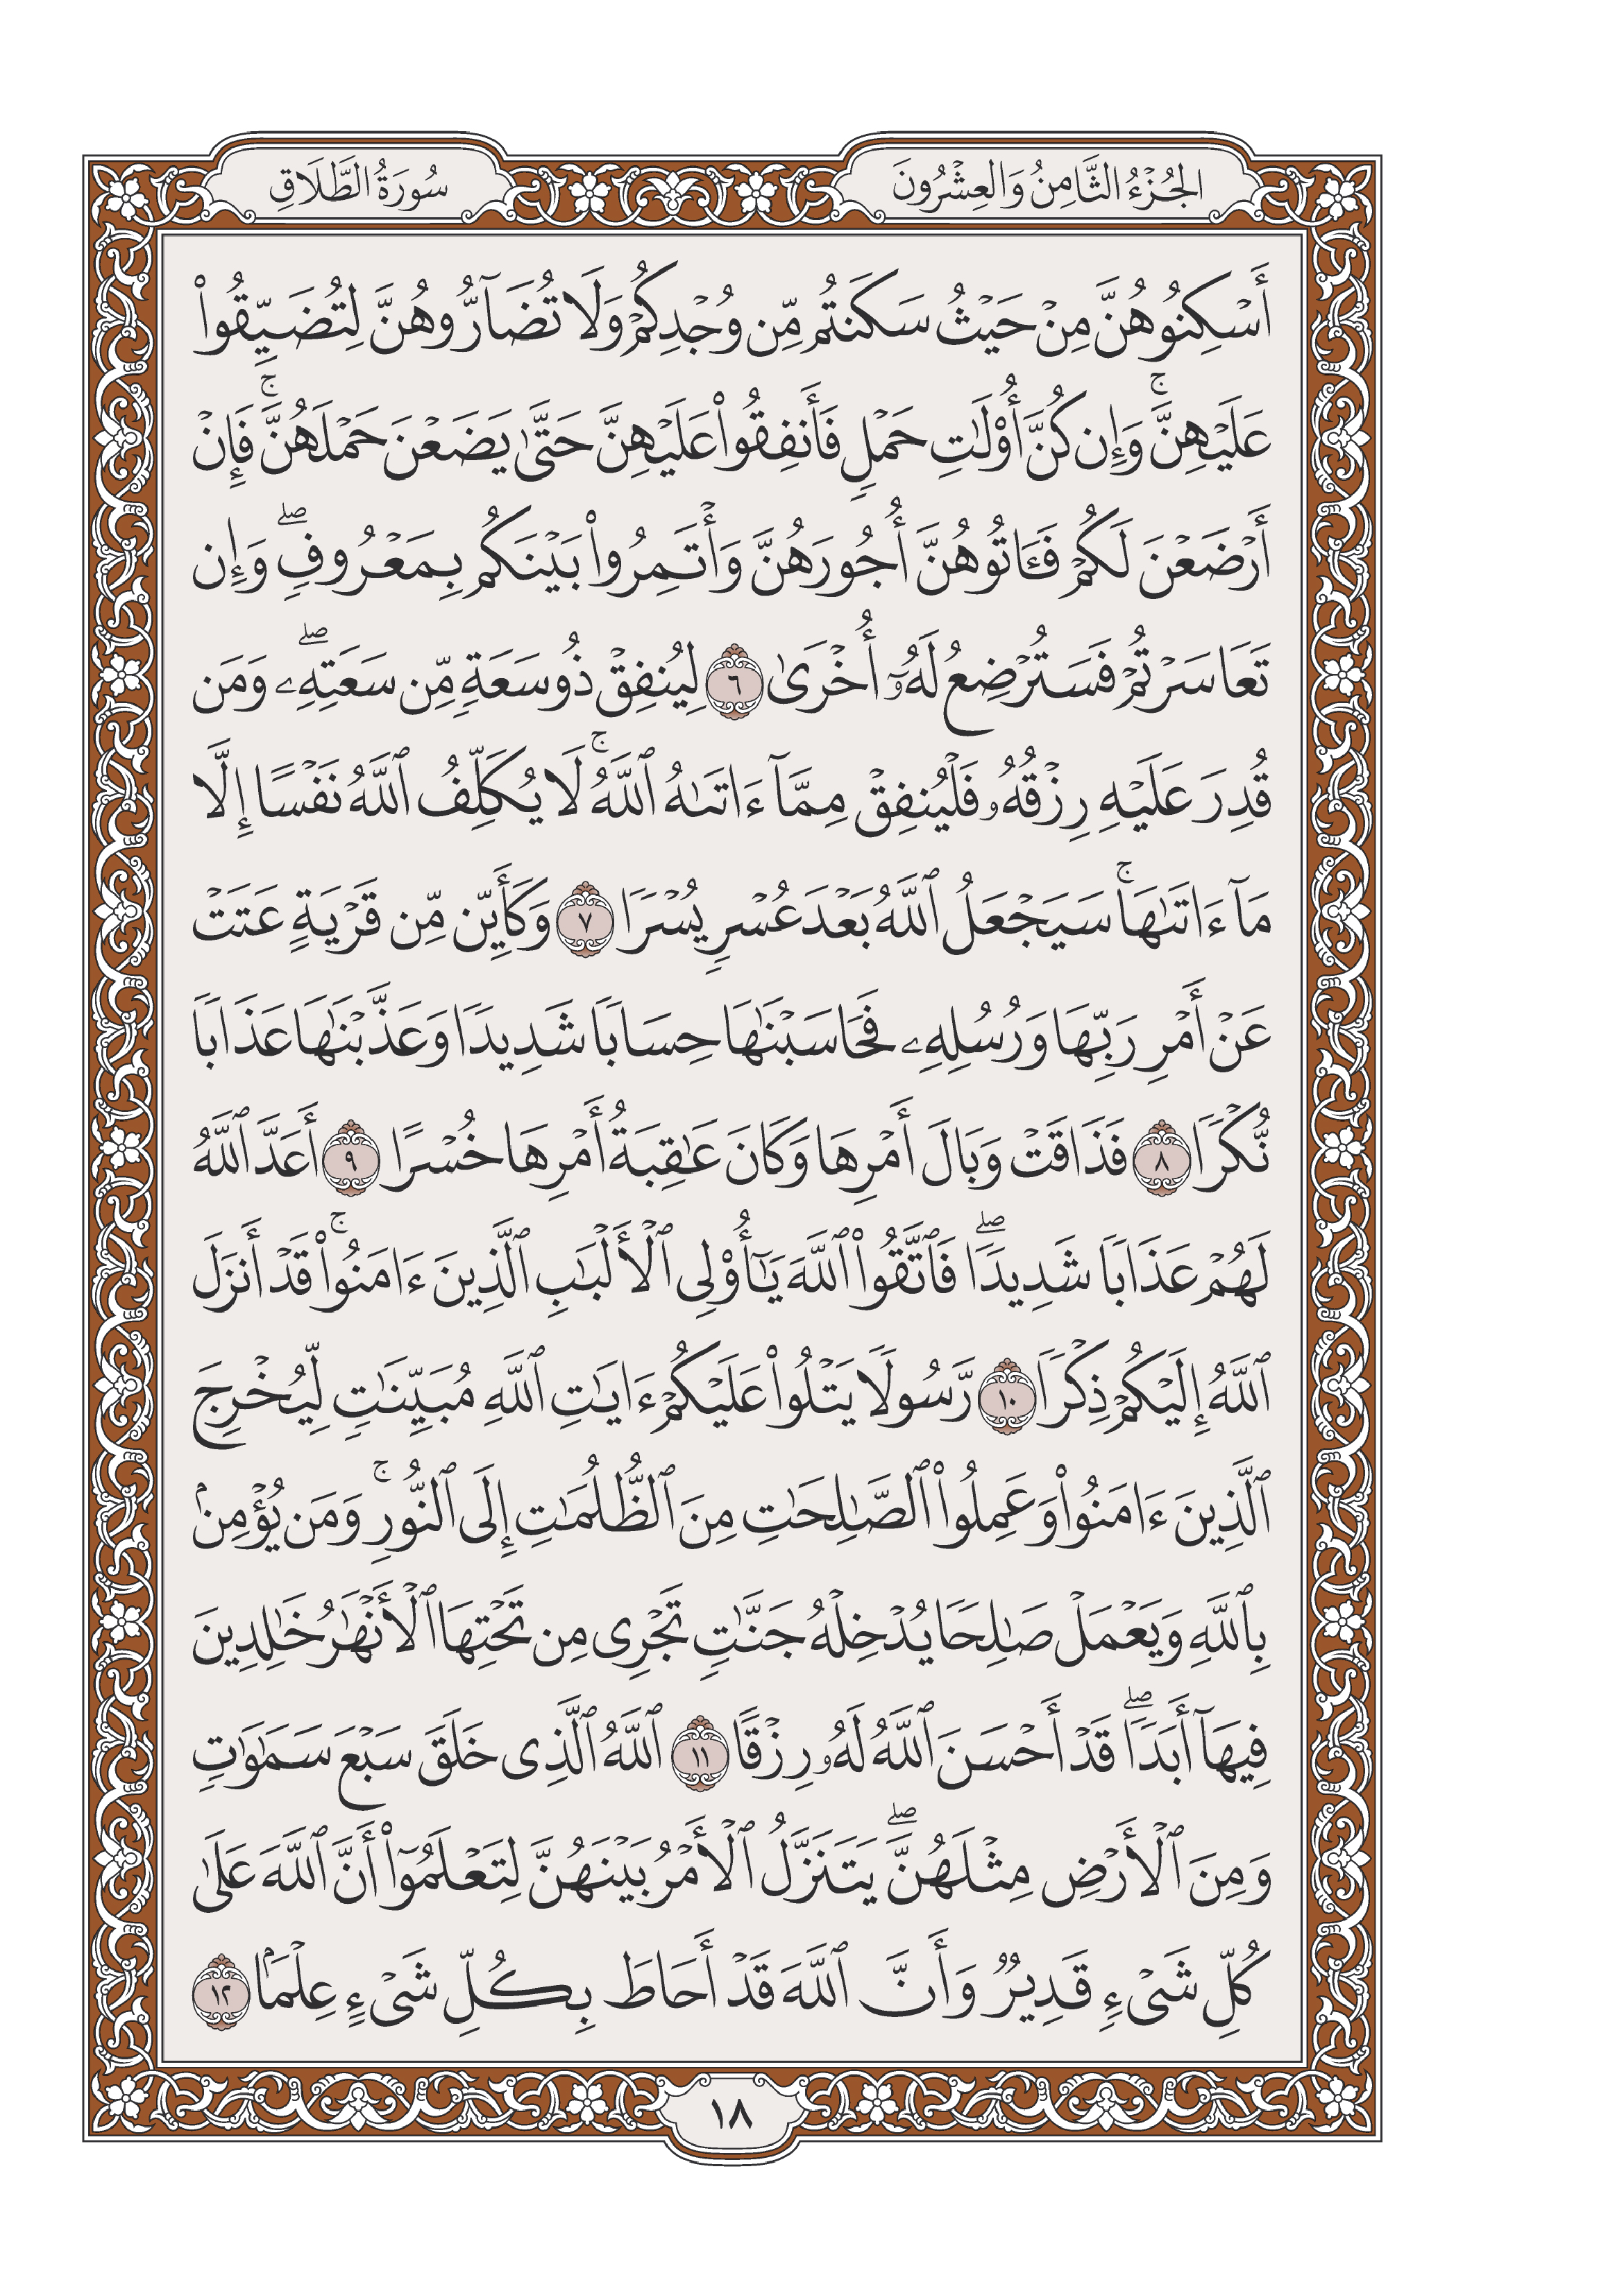 الجُزْءُ الثَّامِنُ وَالعِشْرُونَ
سُورَةُ الطَّلَاقِ
أَسْكِنُوهُنَّ مِنْ حَيْثُ سَكَنتُم مِّن وُجْدِكُمْ وَلَا تُضَآرُّوهُنَّ لِتُضَيِّقُوا۟
عَلَيْهِنَّ ۚ وَإِن كُنَّ أُو۟لَـٰتِ حَمْلٍ فَأَنفِقُوا۟ عَلَيْهِنَّ حَتَّىٰ يَضَعْنَ حَمْلَهُنَّ ۚ فَإِنْ
أَرْضَعْنَ لَكُمْ فَـَٔاتُوهُنَّ أُجُورَهُنَّ وَأْتَمِرُوا۟ بَيْنَكُم بِمَعْرُوفٍ ۖ وَإِن
تَعَاسَرْتُمْ فَسَتُرْضِعُ لَهُۥٓ أُخْرَىٰ ٦ لِيُنفِقْ ذُو سَعَةٍ مِّن سَعَتِهِۦ ۖ وَمَن
قُدِرَ عَلَيْهِ رِزْقُهُۥ فَلْيُنفِقْ مِمَّآ ءَاتَىٰهُ ٱللَّهُ ۚ لَا يُكَلِّفُ ٱللَّهُ نَفْسًا إِلَّا
مَآ ءَاتَىٰهَا ۚ سَيَجْعَلُ ٱللَّهُ بَعْدَ عُسْرٍ يُسْرًا ٧ وَكَأَيِّن مِّن قَرْيَةٍ عَتَتْ
عَنْ أَمْرِ رَبِّهَا وَرُسُلِهِۦ فَحَاسَبْنَـٰهَا حِسَابًا شَدِيدًا وَعَذَّبْنَـٰهَا عَذَابًا
نُّكْرًا ٨ فَذَاقَتْ وَبَالَ أَمْرِهَا وَكَانَ عَـٰقِبَةُ أَمْرِهَا خُسْرًا ٩ أَعَدَّ ٱللَّهُ
لَهُمْ عَذَابًا شَدِيدًا ۖ فَٱتَّقُوا۟ ٱللَّهَ يَـٰٓأُو۟لِى ٱلْأَلْبَـٰبِ ٱلَّذِينَ ءَامَنُوا۟ ۚ قَدْ أَنزَلَ
ٱللَّهُ إِلَيْكُمْ ذِكْرًا ١٠ رَّسُولًا يَتْلُوا۟ عَلَيْكُمْ ءَايَـٰتِ ٱللَّهِ مُبَيِّنَـٰتٍ لِّيُخْرِجَ
ٱلَّذِينَ ءَامَنُوا۟ وَعَمِلُوا۟ ٱلصَّـٰلِحَـٰتِ مِنَ ٱلظُّلُمَـٰتِ إِلَى ٱلنُّورِ ۚ وَمَن يُؤْمِنۢ
بِٱللَّهِ وَيَعْمَلْ صَـٰلِحًا يُدْخِلْهُ جَنَّـٰتٍ تَجْرِى مِن تَحْتِهَا ٱلْأَنْهَـٰرُ خَـٰلِدِينَ
فِيهَآ أَبَدًا ۖ قَدْ أَحْسَنَ ٱللَّهُ لَهُۥ رِزْقًا ١١ ٱللَّهُ ٱلَّذِى خَلَقَ سَبْعَ سَمَـٰوَٰتٍ
وَمِنَ ٱلْأَرْضِ مِثْلَهُنَّ ۖ يَتَنَزَّلُ ٱلْأَمْرُ بَيْنَهُنَّ لِتَعْلَمُوٓا۟ أَنَّ ٱللَّهَ عَلَىٰ
كُلِّ شَىْءٍ قَدِيرٌ وَأَنَّ ٱللَّهَ قَدْ أَحَاطَ بِكُلِّ شَىْءٍ عِلْمًۢا ١٢
١٨